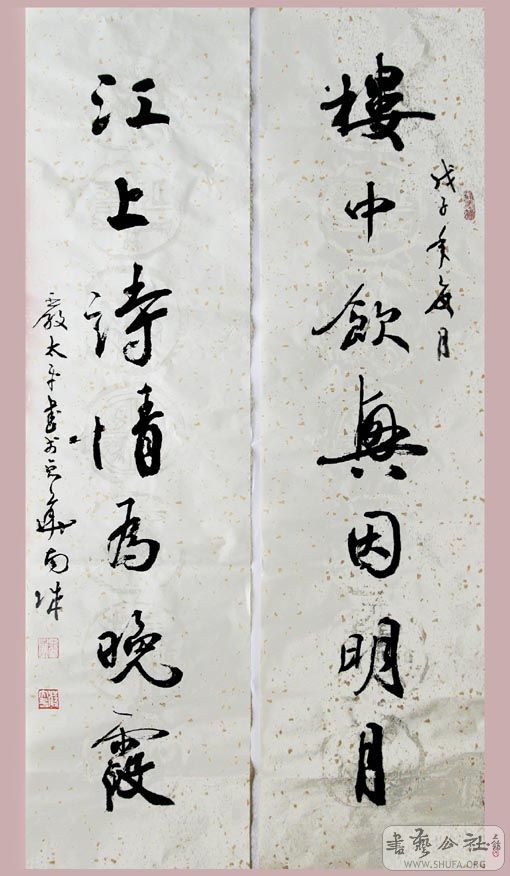 戊子年夏月
樓中飲興因明月
江上詩情為晚霞
嚴太平書於京華南
書藝公社
WWW.SHUFA.ORG